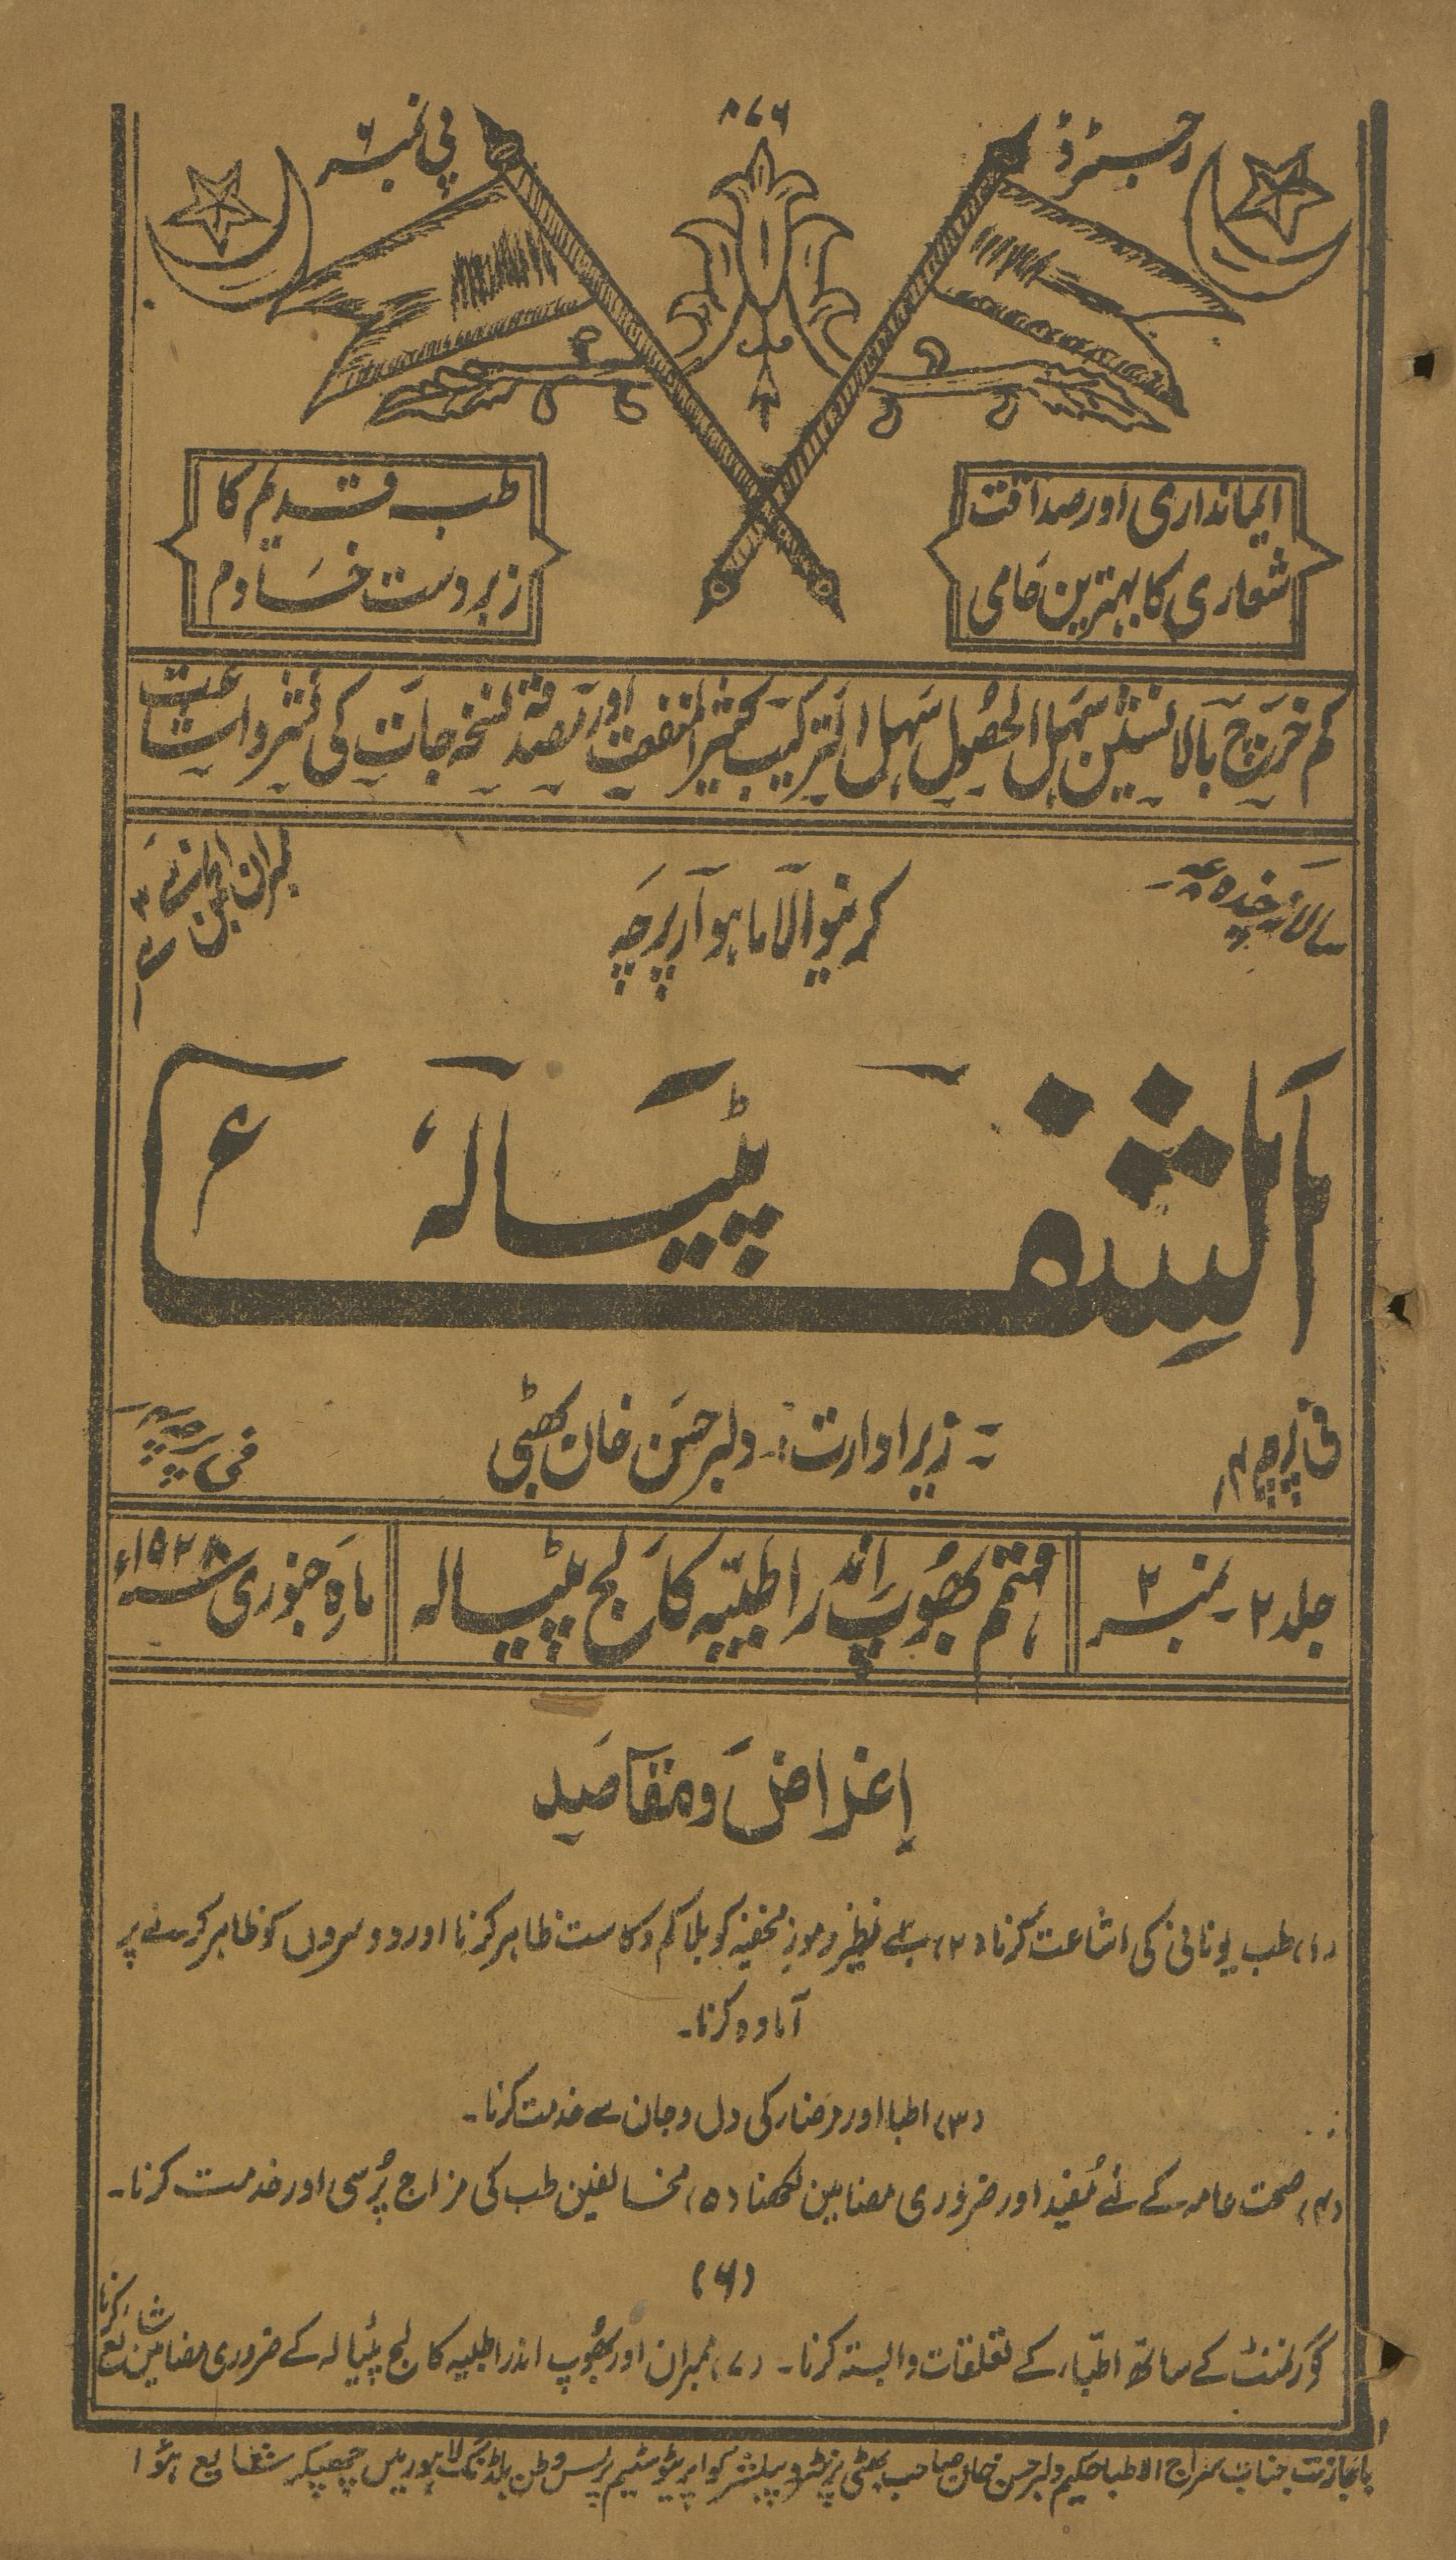 ۷۸۶
رجسٹرڈ
فی نمبر ۶
ایمانداری اور صداقت
شعاری کا بہترین حامی
طب قدیم کا
زبردست خادم
کم خرچ بالا نشین سہل الحصول سہل الترکیب کثیر المنفعت اور مصدقہ نسخہ جات کی نشر و اشاعت
سالانہ چندہ
کرنیوالا ماہوار پرچہ
ممبران انجمن
الشفاء پٹیالہ
فی پرچہ ۴؍
زیر ادارت:۔ دلبر حسن خان بھٹی
فی پرچہ
جلد ۲۔ نمبر ۲
مہتمم بھوپ اندرا طبیہ کالج پٹیالہ
ماہ جنوری ۱۹۲۸ء
اغراض و مقاصد
(۱) طب یونانی کی اشاعت کرنا (۲) بے نظیر رموز مخفیہ کو بلا کم و کاست ظاہر کرنا اور دوسروں کو ظاہر کرنے پر
آمادہ کرنا۔
(۳) اطبا اور مرضاء کی دل و جان سے خدمت کرنا۔
(۴) صحت عامہ کے لئے مفید اور ضروری مضامین لکھنا (۵) مخالفین طب کی مزاج پرسی اور خدمت کرنا۔
(۶)
گورنمنٹ کے ساتھ اطباء کے تعلقات وابستہ کرنا۔ (۷) ممبران اور بھوپ اندرا طبیہ کالج پٹیالہ کے ضروری مضامین شائع کرنا
باجازت جناب سراج الاطبا حکیم دلبر حسن خان صاحب بھٹی پرنٹر و پبلشر کواپریٹو سٹیم پریس وطن بلڈنگ لاہور میں چھپکر شائع ہوا